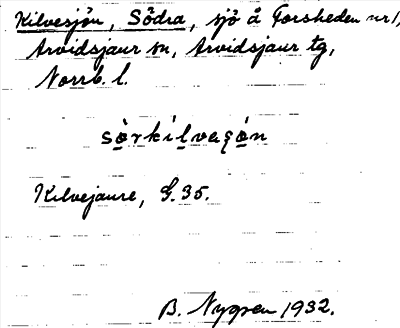 Kilvesjön, Södra, sjö å Forsheden nr 1,
Arvidsjaur sn, Arvidsjaur tg,
Norrb. l.
sö̱rki̱lvaşö̱n
Kilvejaure, G. 35.
B. Nygren 1932.